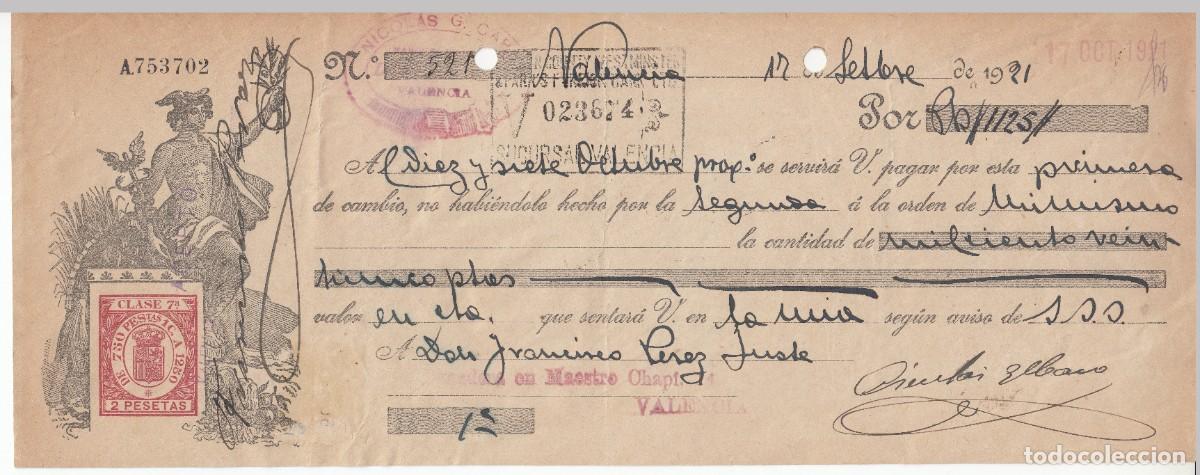 A.753702
N.º 521 Valencia 17 de Setbre de 1921
17 OCT. 1921
NICOLAS G.
VALENCIA
WESTMINSTER
& PARR'S FOREIGN BANK LTD
023674
SUCURSAL VALENCIA
Por Pts/1125/
A el Diez y siete Octubre prox.º se servirá V. pagar por esta primera
de cambio, no habiéndolo hecho por la Segunda á la orden de Mi mismo
la cantidad de mil ciento vein-
ticinco ptas
valor en cta. que sentará V. en la mia según aviso de S.S.S.
A Don Francisco Perez Juste
en Maestro Chapí
VALENCIA
1ª
CLASE 7ª
DE 750 PESTAS 1 C. A 1250
2 PESETAS
todocoleccion